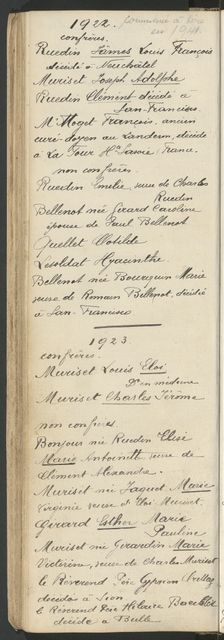 1922.
confrères.
Ruedin James Louis François
décédé à Neuchâtel
Muriset Joseph Adolphe
Ruedin Clément décédé à
San-Francisco
Mr François, ancien
curé-doyen au Landeron, décédé
à La Tour Hte Savoie, France.
non confrères.
Ruedin Emélie, veuve de Charles
Ruedin
Bellenot née Girard Caroline
épouse de Paul Bellenot
Quellet Clotilde
Hyacinthe
Bellenot née Bourquin Marie
veuve de Romain Bellenot, décédée
à San-Francisco
1923
confrères.
Muriset Louis Eloi
Muriset Charles Jérôme
non confrères
Bonjour née Ruedin Elise
Marie Antoinette veuve de
Clément Alexandre.
Muriset née Jaquet Marie
Virginie veuve d'Eloi Muriset.
Girard Esther Marie
Pauline
Muriset née Girardin Marie
Victorine, veuve de Charles Muriset
le Révérend Père
décédé à Sion
le Révérend Père Hilaire
décédé à Bulle